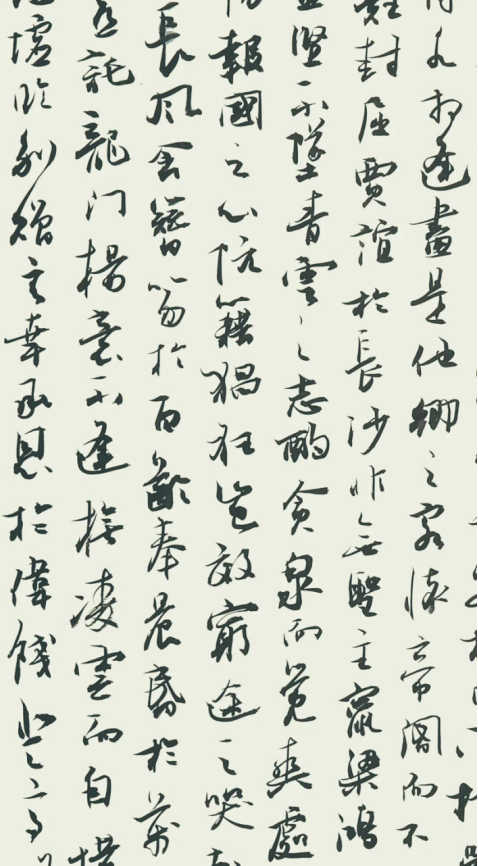 水相逢盡是他鄉之客懷帝閣而不
難封屈賈誼於長沙非無聖主竄梁鴻
益堅不墜青雲之志酌貪泉而覺爽處
報國之心阮籍猖狂豈效窮途之哭
長風舍簪笏於百齡奉晨昏於萬
託龍門楊意不逢撫凌雲而自惜
墟臨別贈言幸承恩於偉餞